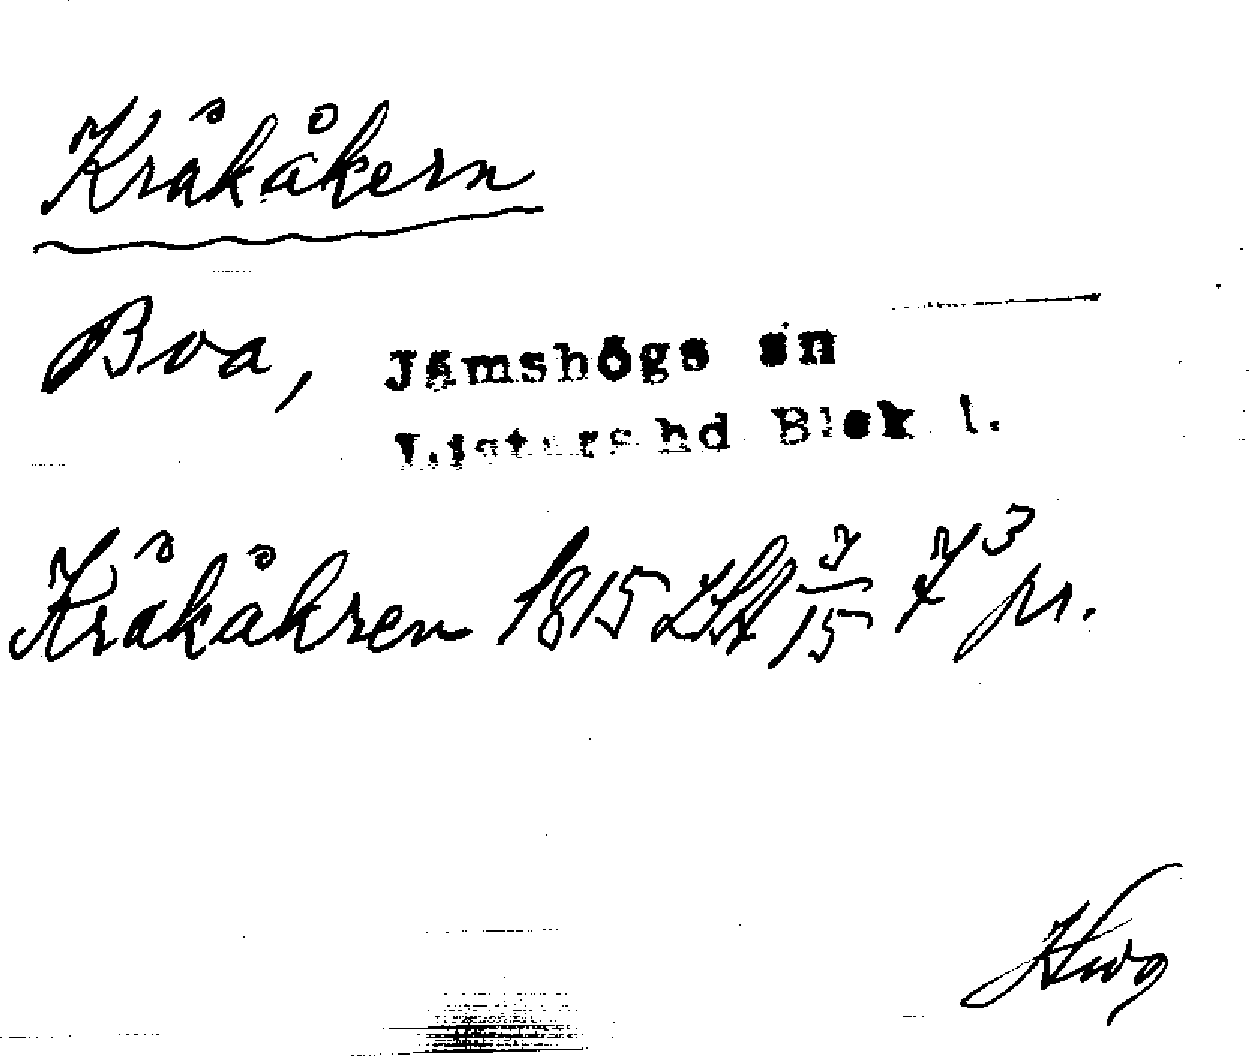 Kråkåkern
Boa, Jämshögs sn
Listers hd Blek l.
Kråkåkren 1815 LSA